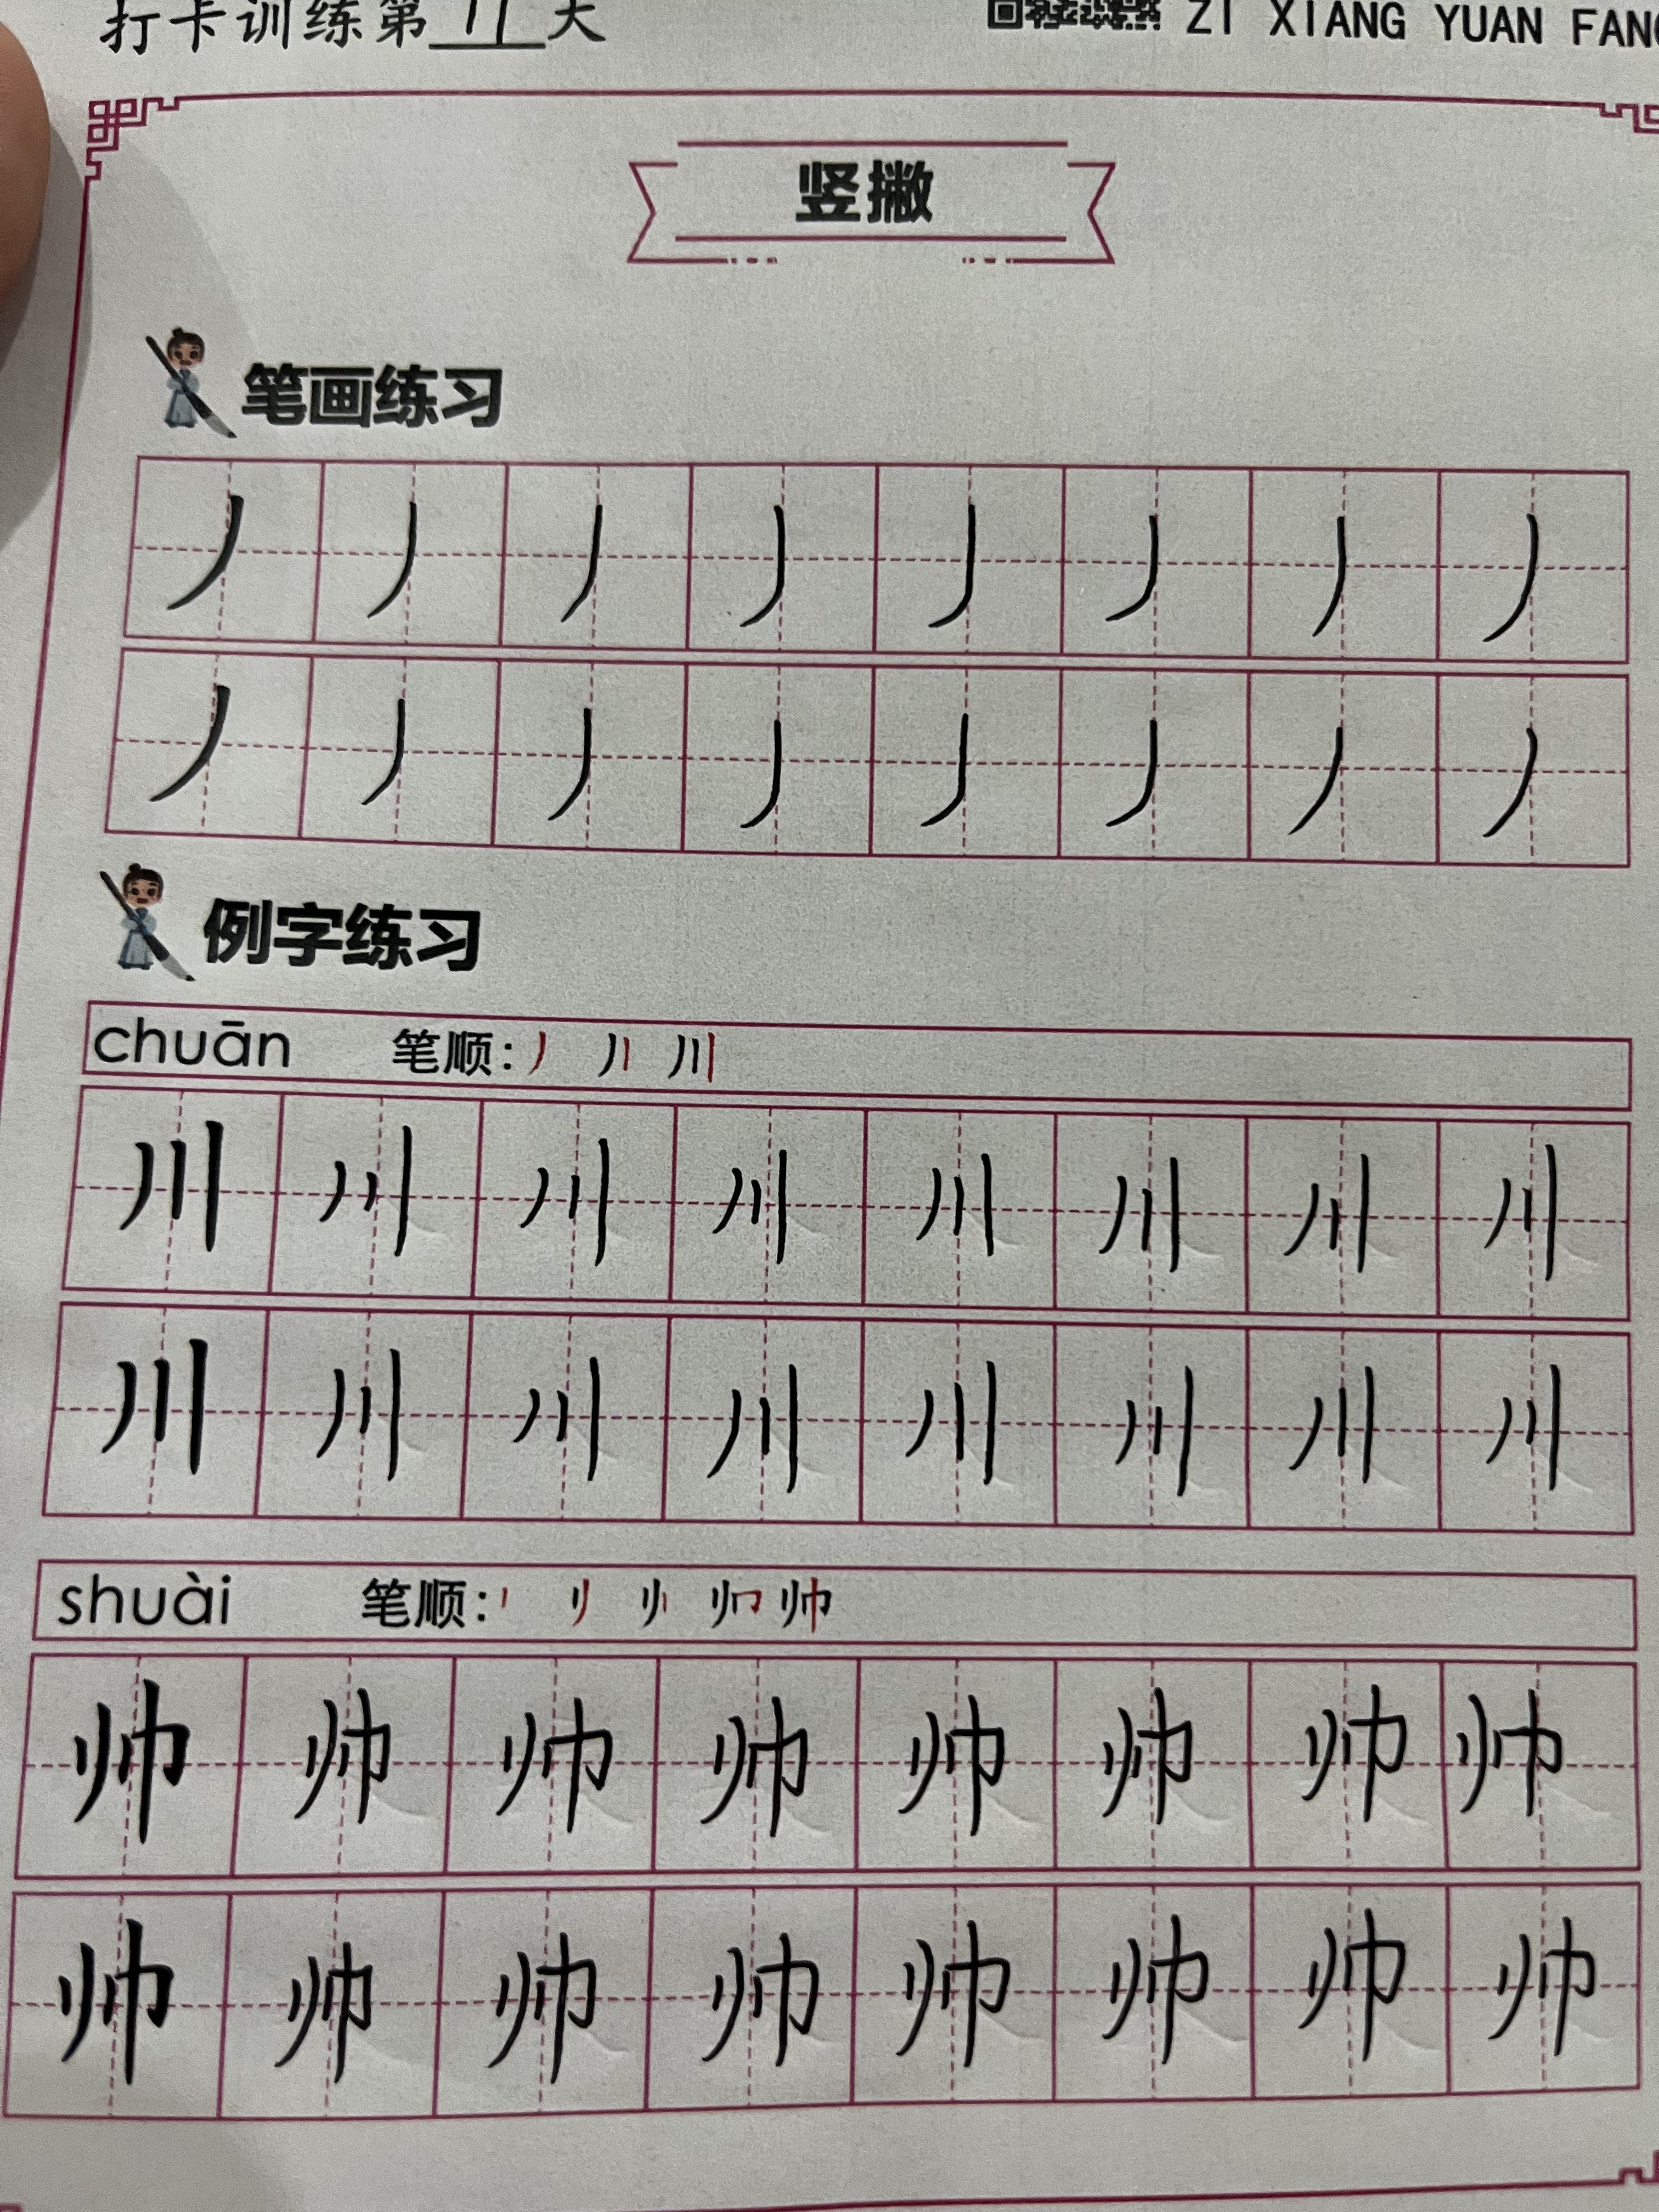 打卡训练第11天 ZI XIANG YUAN FANG
竖撇
笔画练习
丿 丿 丿 丿 丿 丿 丿 丿
丿 丿 丿 丿 丿 丿 丿 丿
例字练习
chuān 笔顺: 丿 丿丨 川
川 川 川 川 川 川 川 川
川 川 川 川 川 川 川 川
shuài 笔顺: 帅
帅 帅 帅 帅 帅 帅 帅 帅
帅 帅 帅 帅 帅 帅 帅 帅